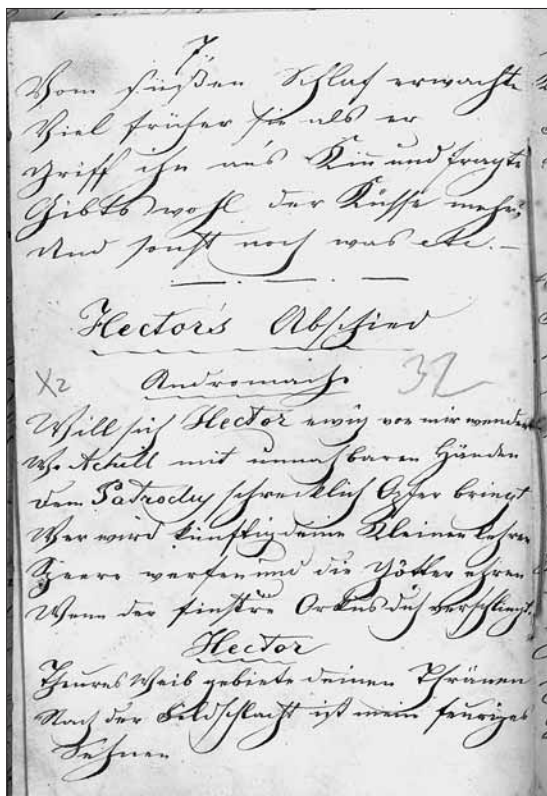 7.
Vom süßen Schlaf erwachte
Viel früher sie als er
Griff ihn an's Kinn und fragte
Gibts wohl der Küsse mehr,
Und sonst noch was etc. –
Hector's Abschied
X2 Andromache 32
Will sich Hector ewig von mir wenden
Wo Achill mit unnahbaren Händen
Dem Patroclus schrecklich Opfer bringt
Wer wird künftig deine Kleinen lehren
Speere werfen und die Götter ehren
Wenn der finstre Orkus dich verschlingt.
Hector
Theures Weib gebiete deinen Thränen
Nach der Feldschlacht ist mein feuriges
Sehnen